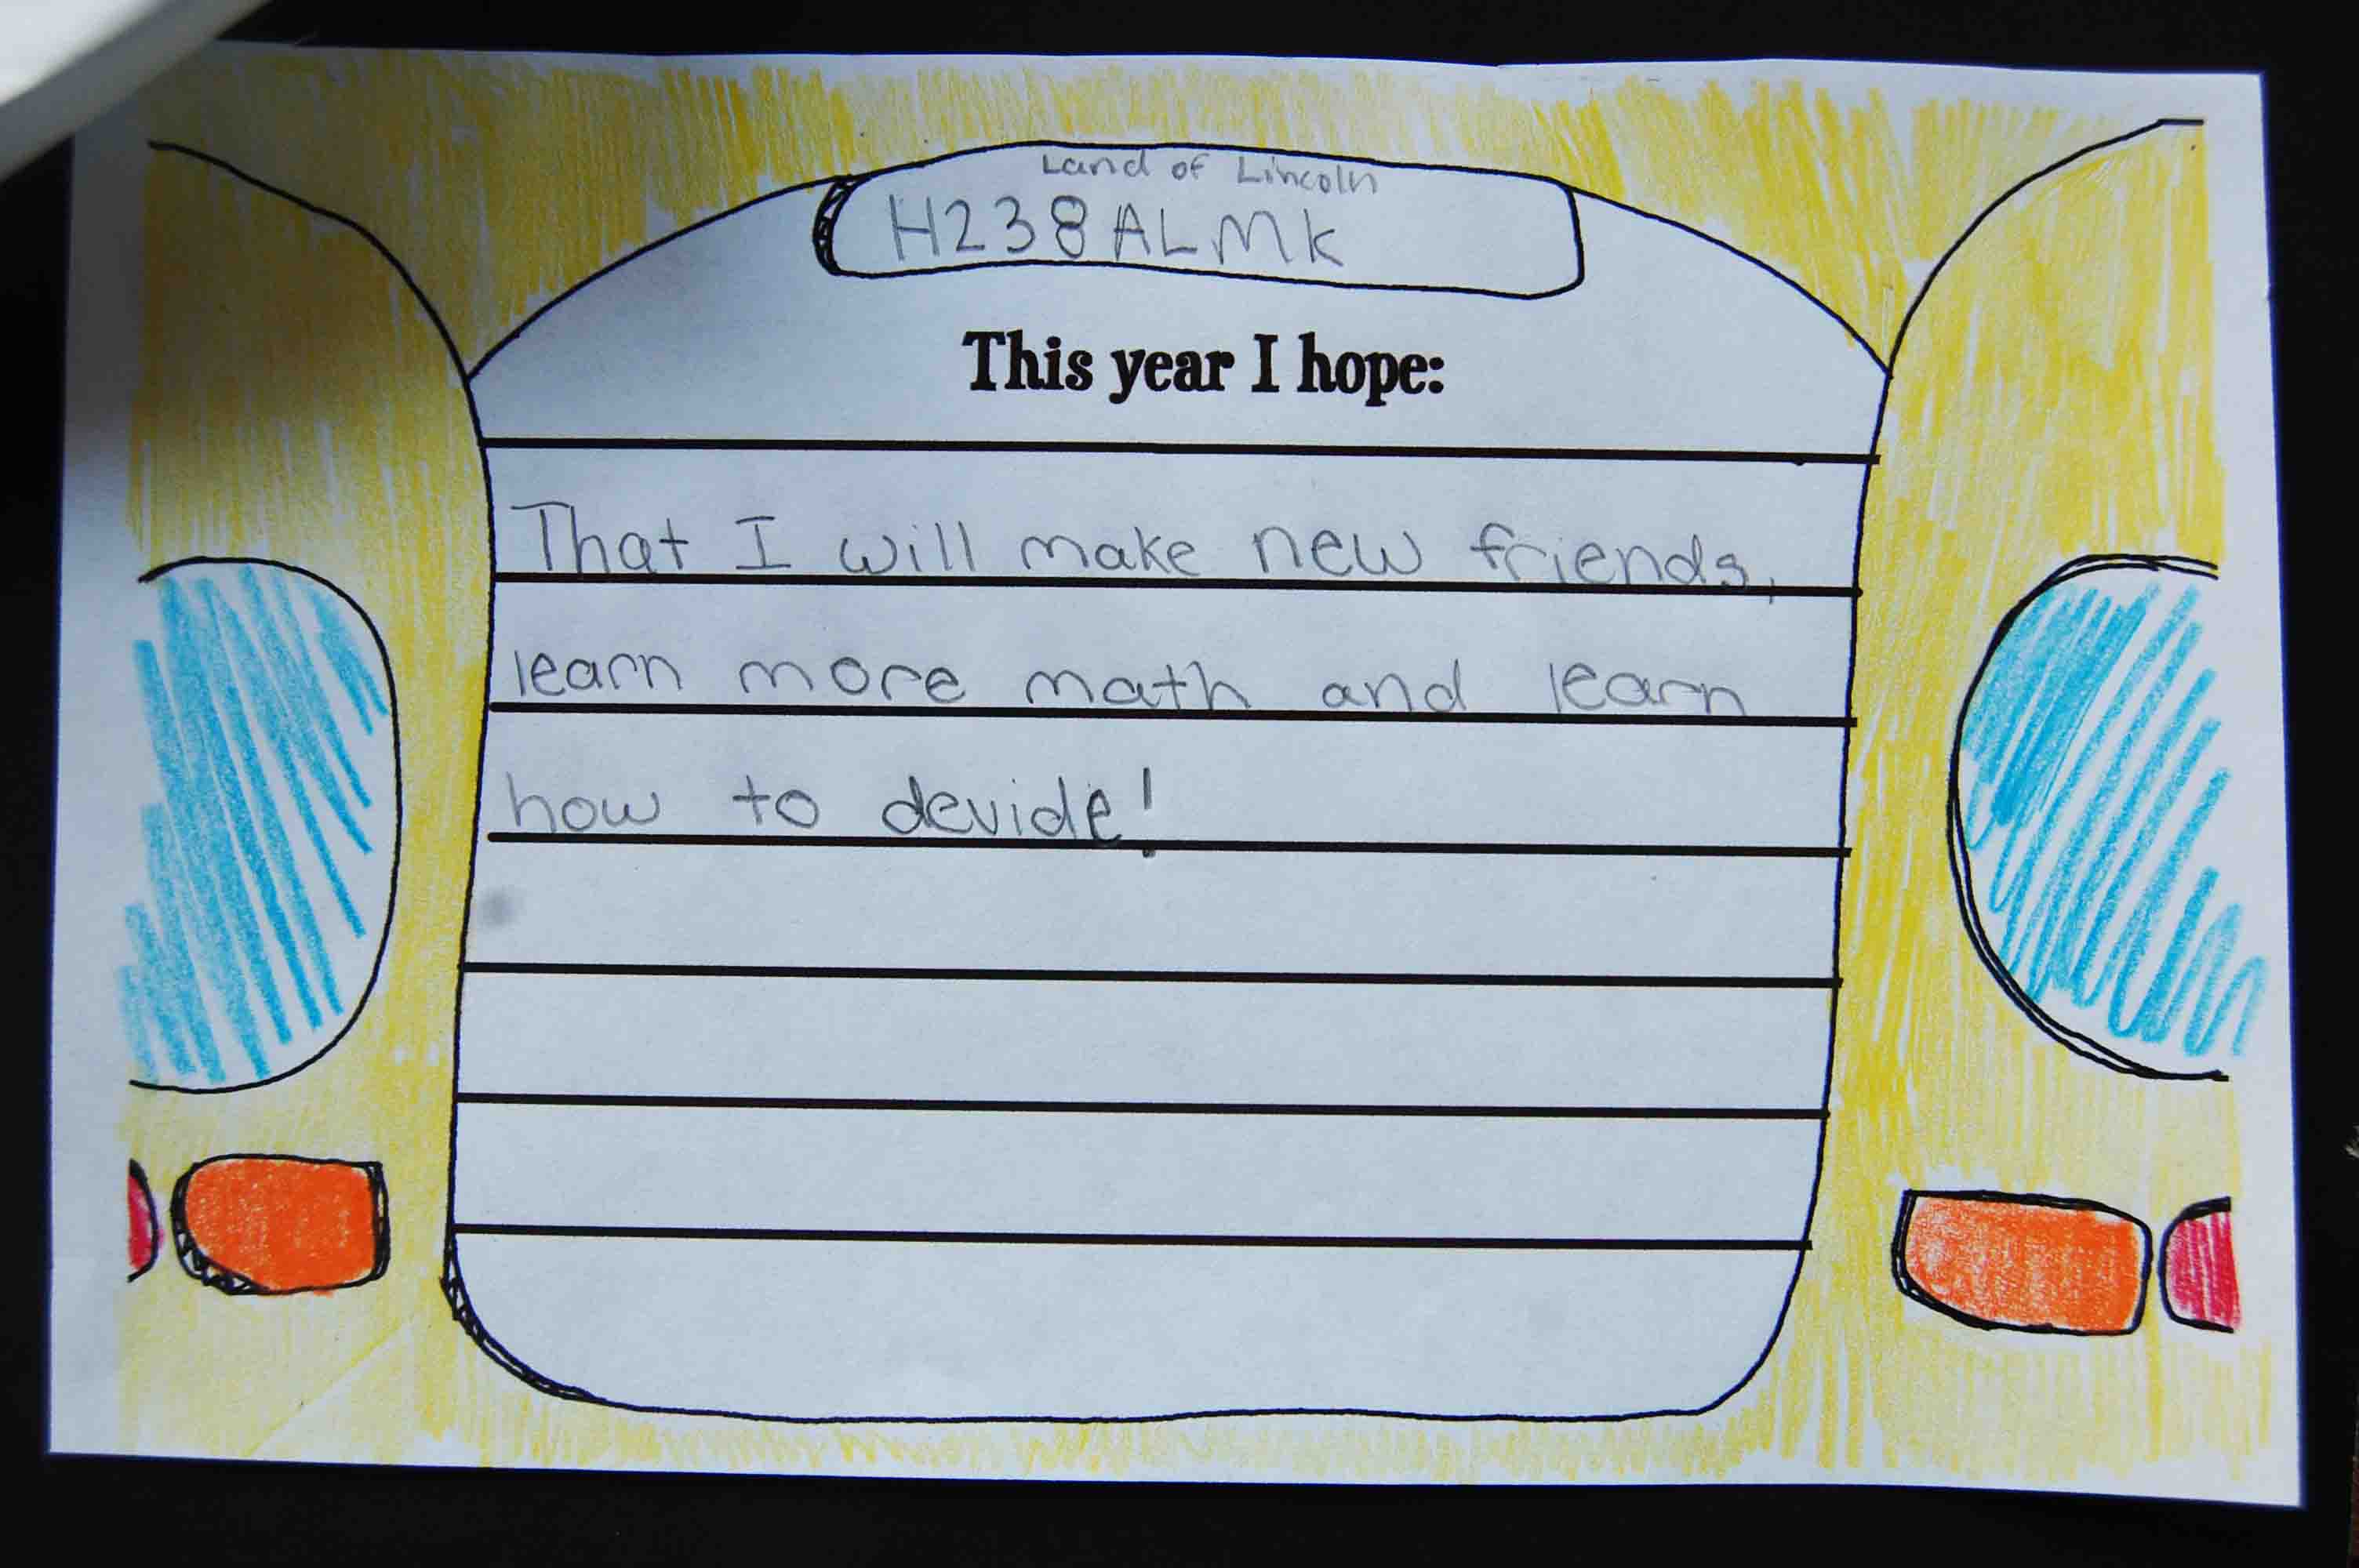 Land of Lincoln
H238ALMK
This year I hope:
That I will make new friends,
learn more math and learn
how to devide!